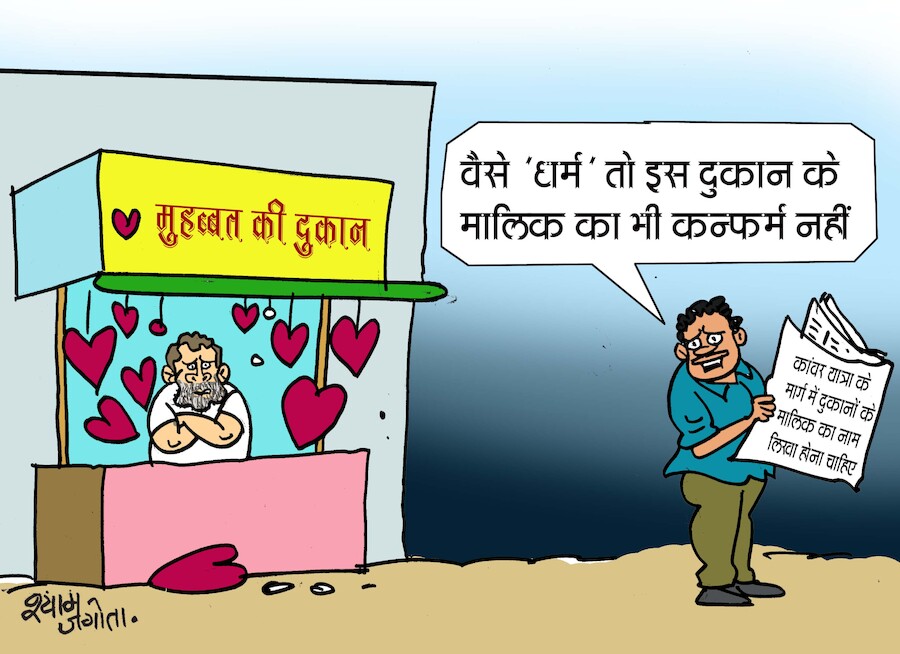 मुहब्बत की दुकान
वैसे 'धर्म' तो इस दुकान के
मालिक का भी कन्फर्म नहीं
कांवर यात्रा के
मार्ग में दुकानों के
मालिक का नाम
लिखा होना चाहिए
श्याम
जगोता.